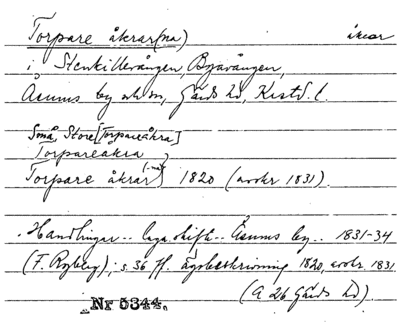 Torpare åkrar(na) åkrar
i Stenkillevången, Byavången,
Åsums by och sn, Gärds hd, Krstd. l.
Små, Store [Torpareåkra]
Torpareåkra
Torpare åkrar (-na) 1820 (avskr 1831).
Handlingar .. laga skifte .. Åsums by .. 1831-34
(F. Rygberg), s. 36 ff. ägobeskrivning 1820, avskr. 1831
(A 26 Gärds hd)
Nr 5344.